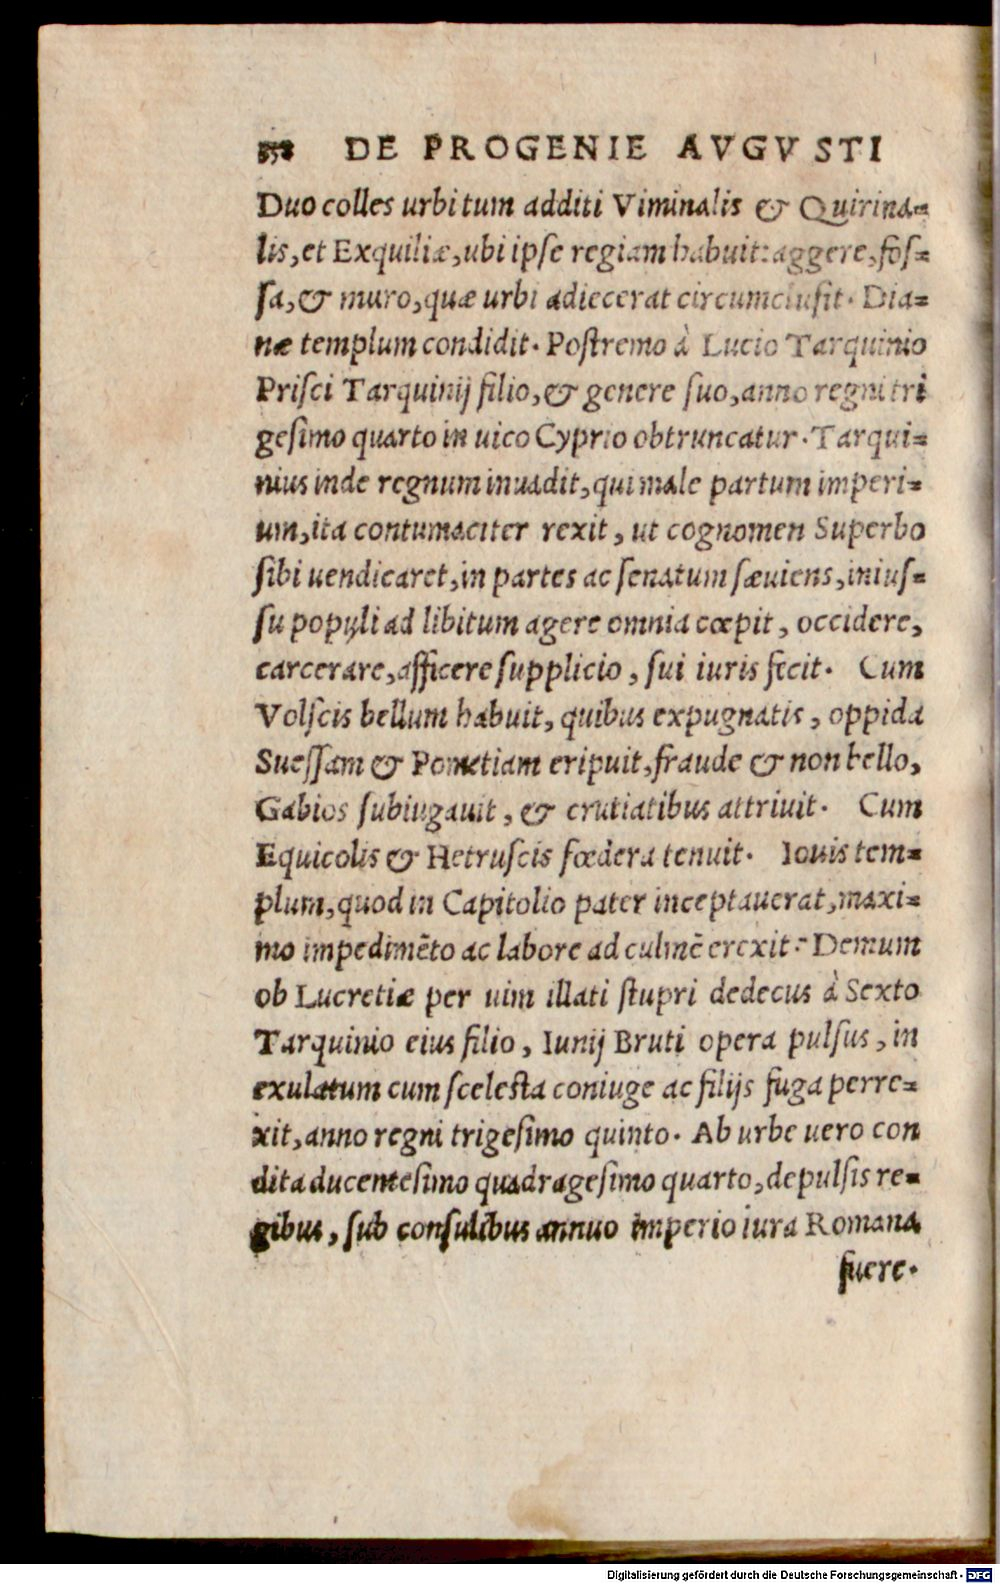 358 DE PROGENIE AVGVSTI
Duo colles urbi tum additi Viminalis & Quirina-
lis, et Exquiliæ, ubi ipse regiam habuit: aggere, fos-
sa, & muro, quæ urbi adiecerat circumclusit. Dia-
næ templum condidit. Postremo à Lucio Tarquinio
Prisci Tarquinij filio, & genere suo, anno regni tri
gesimo quarto in uico Cyprio obtruncatur. Tarqui-
nius inde regnum inuadit, qui male partum imperi-
um, ita contumaciter rexit, ut cognomen Superbo
sibi uendicaret, in partes ac senatum sæuiens, inius-
su populi ad libitum agere omnia cœpit, occidere,
carcerare, afficere supplicio, sui iuris fecit. Cum
Volscis bellum habuit, quibus expugnatis, oppida
Suessam & Pometiam eripuit, fraude & non bello,
Gabios subiugauit, & crutiatibus attriuit. Cum
Equicolis & Hetruscis fœdera tenuit. Iouis tem-
plum, quod in Capitolio pater inceptauerat, maxi-
mo impedimēto ac labore ad culmē erexit. Demum
ob Lucretiæ per uim illati stupri dedecus à Sexto
Tarquinio eius filio, Iunij Bruti opera pulsus, in
exulatum cum scelesta coniuge ac filijs fuga perre-
xit, anno regni trigesimo quinto. Ab urbe uero con
dita ducentesimo quadragesimo quarto, depulsis re-
gibus, sub consulibus annuo imperio iura Romana
fuere.
Digitalisierung gefördert durch die Deutsche Forschungsgemeinschaft - DFG